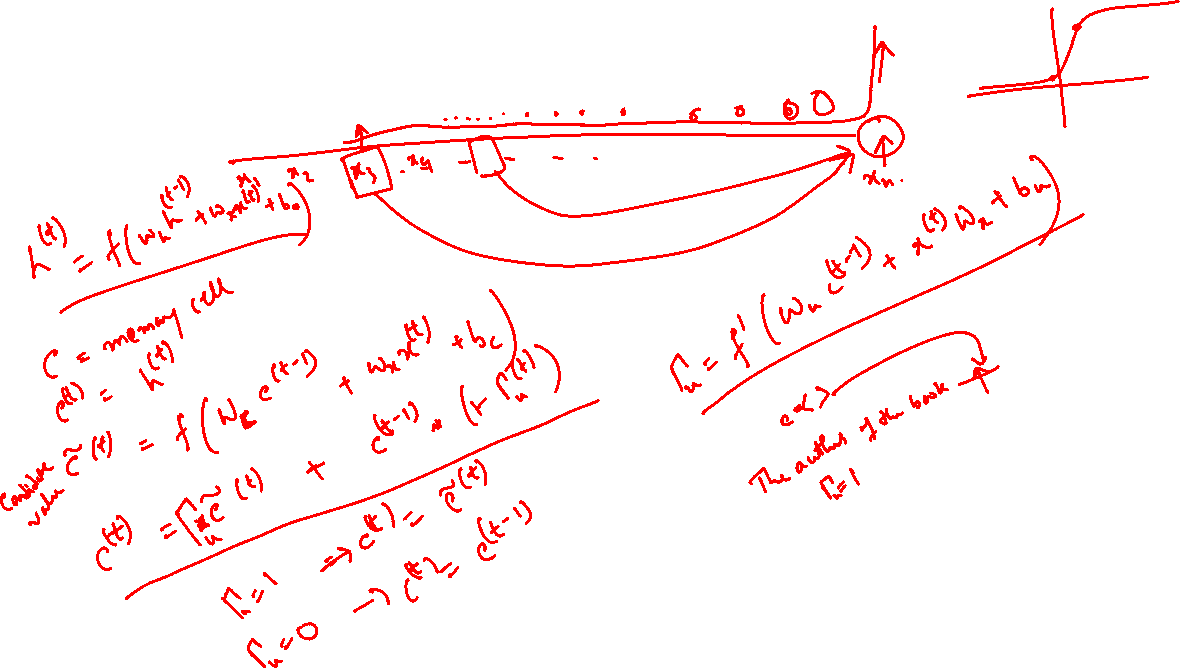 x₃ . x₄
xₙ.
x₁ x₂
h^(t) = f(w_h h^(t-1) + w_x x^(t) + b_0)
C = memory cell
c^(t) = h^(t)
Candidate value c̃^(t) = f(W_c c^(t-1) + w_x x^(t) + b_c)
c^(t) = Γ_u * c̃^(t) + c^(t-1) * (1- Γ_u^(t))
Γ_u = 1 ⇒ c^(t) = c̃^(t)
Γ_u = 0 → c^(t) = c^(t-1)
Γ_u = f'(W_u c^(t-1) + x^(t) W_x + b_u)
The author of the book
Γ_u = 1